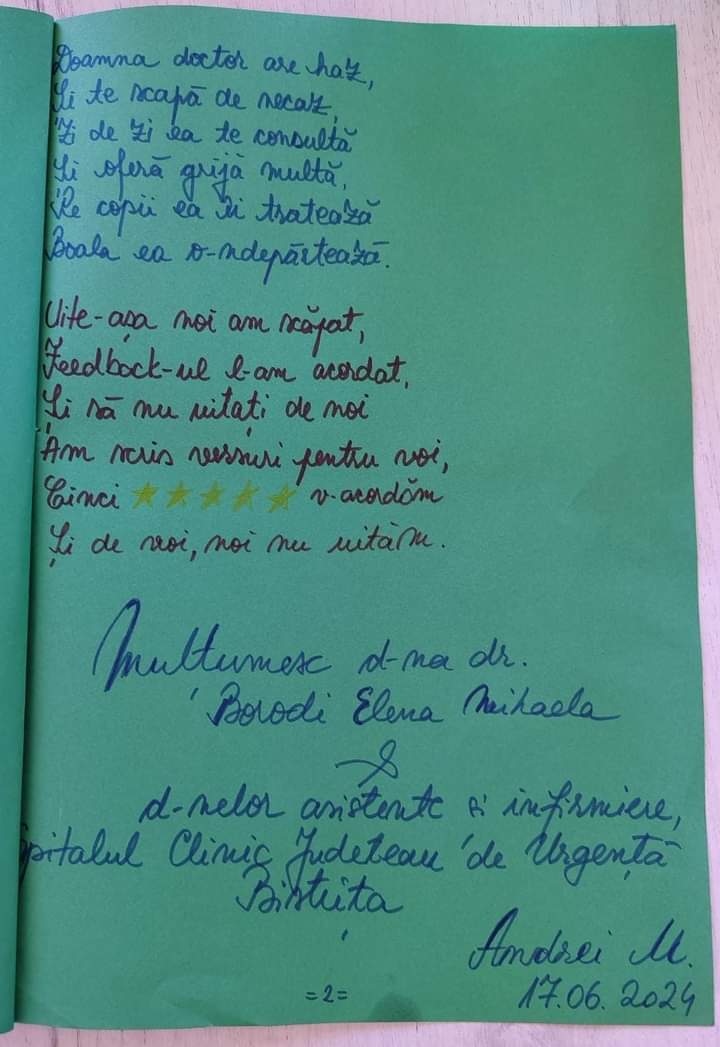 Doamna doctor are haz,
Și te scapă de necaz,
Zi de zi ea te consultă
Și oferă grijă multă,
Pe copii ea îi tratează
Boala ea o-ndepărtează.
Uite-așa noi am scăpat,
Feedback-ul l-am acordat,
Și să nu uitați de noi
Am scris versuri pentru voi,
Cinci ★★★★★ v-acordăm
Și de voi, noi nu uităm.
Mulțumesc d-na dr.
Borodi Elena Mihaela
&
d-nelor asistente și infirmiere,
Spitalul Clinic Județean de Urgență
Bistrița
Andrei M.
17.06.2024
=2=